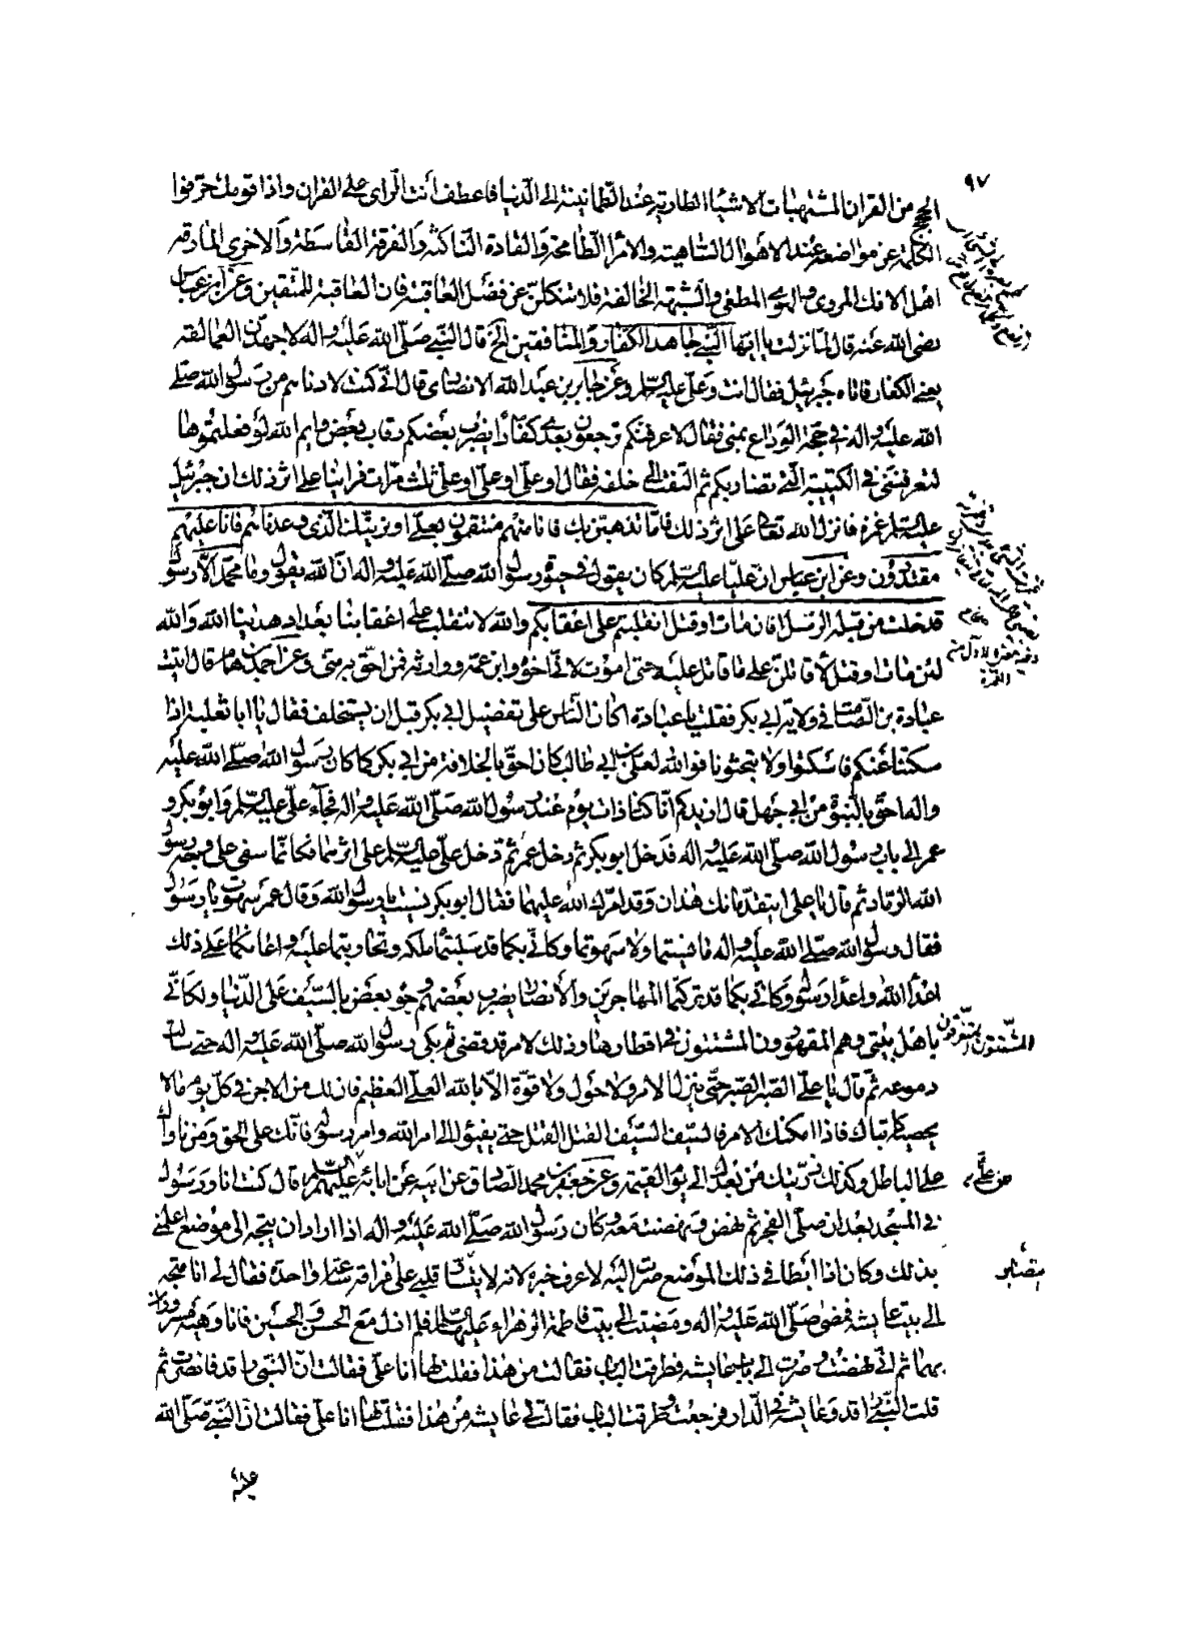 ٩٧
الحجج من القران المشتبهات الاشياء الطارية عند الطمانينة الى الدنيا فاعطف انت الراى على القران واذا قومك حرفوا
الكلمة عن مواضعه عند الاهوال الساهية والامر الطامحة والقادة الناكثة والفرقة القاسطة والاخرى المارقة
اهل الافك المردى والهوى المطغى والشبهة الخالفة فلا تتكلن عن فضل العاقبة فان العاقبة للمتقين وعن ابن عباس
رضى الله عنه قال لما نزلت يا ايها النبى جاهد الكفار والمنافقين الخ قال النبى صلى الله عليه واله لاجهدن العمالقه
يعنى الكفار فاتاه جبرئيل فقال انت وعلى عليه السلم وعن جابر بن عبد الله الانصارى قال انى كنت لادناهم من رسول الله صلى
الله عليه واله فى حجة الوداع بمنى فقال لاعرفنكم ترجعون بعدى كفارا يضرب بعضكم رقاب بعض وايم الله لو فعلتموها
لتعرفننى فى الكتيبة التى تضاربكم ثم التفت الى خلفه فقال او على او على او على ثلث مرات فراينا على اثر ذلك ان جبرئيل
عليه السلم غمزه فانزل الله تعالى على اثر ذلك فاما نذهبن بك فانا منهم منتقمون بعلى او نرينك الذى وعدناهم فانا عليهم
مقتدرون وعن ابن عباس ان عليا عليه السلم كان يقول فى حيوة رسول الله صلى الله عليه واله ان الله يقول وما محمد الا رسول
قد خلت من قبله الرسل افان مات او قتل انقلبتم على اعقابكم والله لا ننقلب على اعقابنا بعد اذ هدينا الله والله
لئن مات او قتل لاقاتلن على ما قاتل عليه حتى اموت لانى اخوه وابن عمه ووارثه فمن احق به منى وعن احمد بن همام قال اتيت
عبادة بن الصامت فى ولاية ابى بكر فقلت يا عبادة اكان الناس على تفضيل ابى بكر قبل ان يستخلف فقال يا ابا ثعلبة اذا
سكتنا عنكم فاسكتوا ولا تبحثونا فوالله لعلى بن ابى طالب كان احق بالخلافة من ابى بكر كما كان رسول الله صلى الله عليه
واله احق بالنبوة من ابى جهل قال ازيدكم انا كنا ذات يوم عند رسول الله صلى الله عليه واله فجاء على عليه السلم وابو بكر و
عمر الى باب رسول الله صلى الله عليه واله فدخل ابو بكر ثم دخل عمر ثم دخل على عليه السلم على اثرهما فكانما سفى على وجه رسول
الله الرماد ثم قال يا على ايتقدمانك هذان وقد امرك الله عليهما فقال ابو بكر نسيت يا رسول الله وقال عمر سهوت يا رسول
فقال رسول الله صلى الله عليه واله ما نسيتما ولا سهوتما وكانى بكما قد سلبتما ملكه وتحاربتما عليه واعانكما على ذلك
اعداء الله واعداء رسوله وكانى بكما قد تركتما المهاجرين والانصار يضرب بعضهم وجوه بعض بالسيف على الدنيا ولكانى
باهل بيتى وهم المقهورون المشتتون فى اقطارها وذلك لامر قد قضى ثم بكى رسول الله صلى الله عليه واله حتى سالت
دموعه ثم قال يا على الصبر الصبر حتى ينزل الامر ولا حول ولا قوة الا بالله العلى العظيم فان لك من الاجر فى كل يوم مالا
يحصيه كاتباك فاذا امكنك الامر فالسيف السيف القتل القتل حتى يفيئوا الى امر الله وامر رسوله فانك على الحق ومن ناواك
على الباطل وكذلك ذريتك من بعدك الى يوم القيمة وعن جعفر بن محمد الصادق عن ابيه عن ابائه عليهم السلم قال كنت انا ورسول
فى المسجد بعد ان صلى الفجر ثم نهض ونهضت معه وكان رسول الله صلى الله عليه واله اذا اراد ان يتجه الى موضع اعلمنى
بذلك وكان اذا ابطا فى ذلك الموضع صرت اليه لاعرف خبره لانه لا يتقار قلبى على فراقه ساعة واحدة فقال لى انا متجه
الى بيت عايشه فمضى صلى الله عليه واله ومضيت الى بيت فاطمة الزهراء عليها السلم فلم ازل مع الحسن والحسين فانا وهى مسروران
بهما ثم انى نهضت وصرت الى باب عايشه فطرقت الباب فقالت من هذا فقلت لها انا على فقالت ان النبى راقد فانصرفت ثم
قلت النبى راقد وعايشه فى الدار فرجعت وطرقت الباب فقالت لى عايشه من هذا فقلت لها انا على فقالت ان النبى صلى الله
المشتتون المتفرقون
عن على
عليه